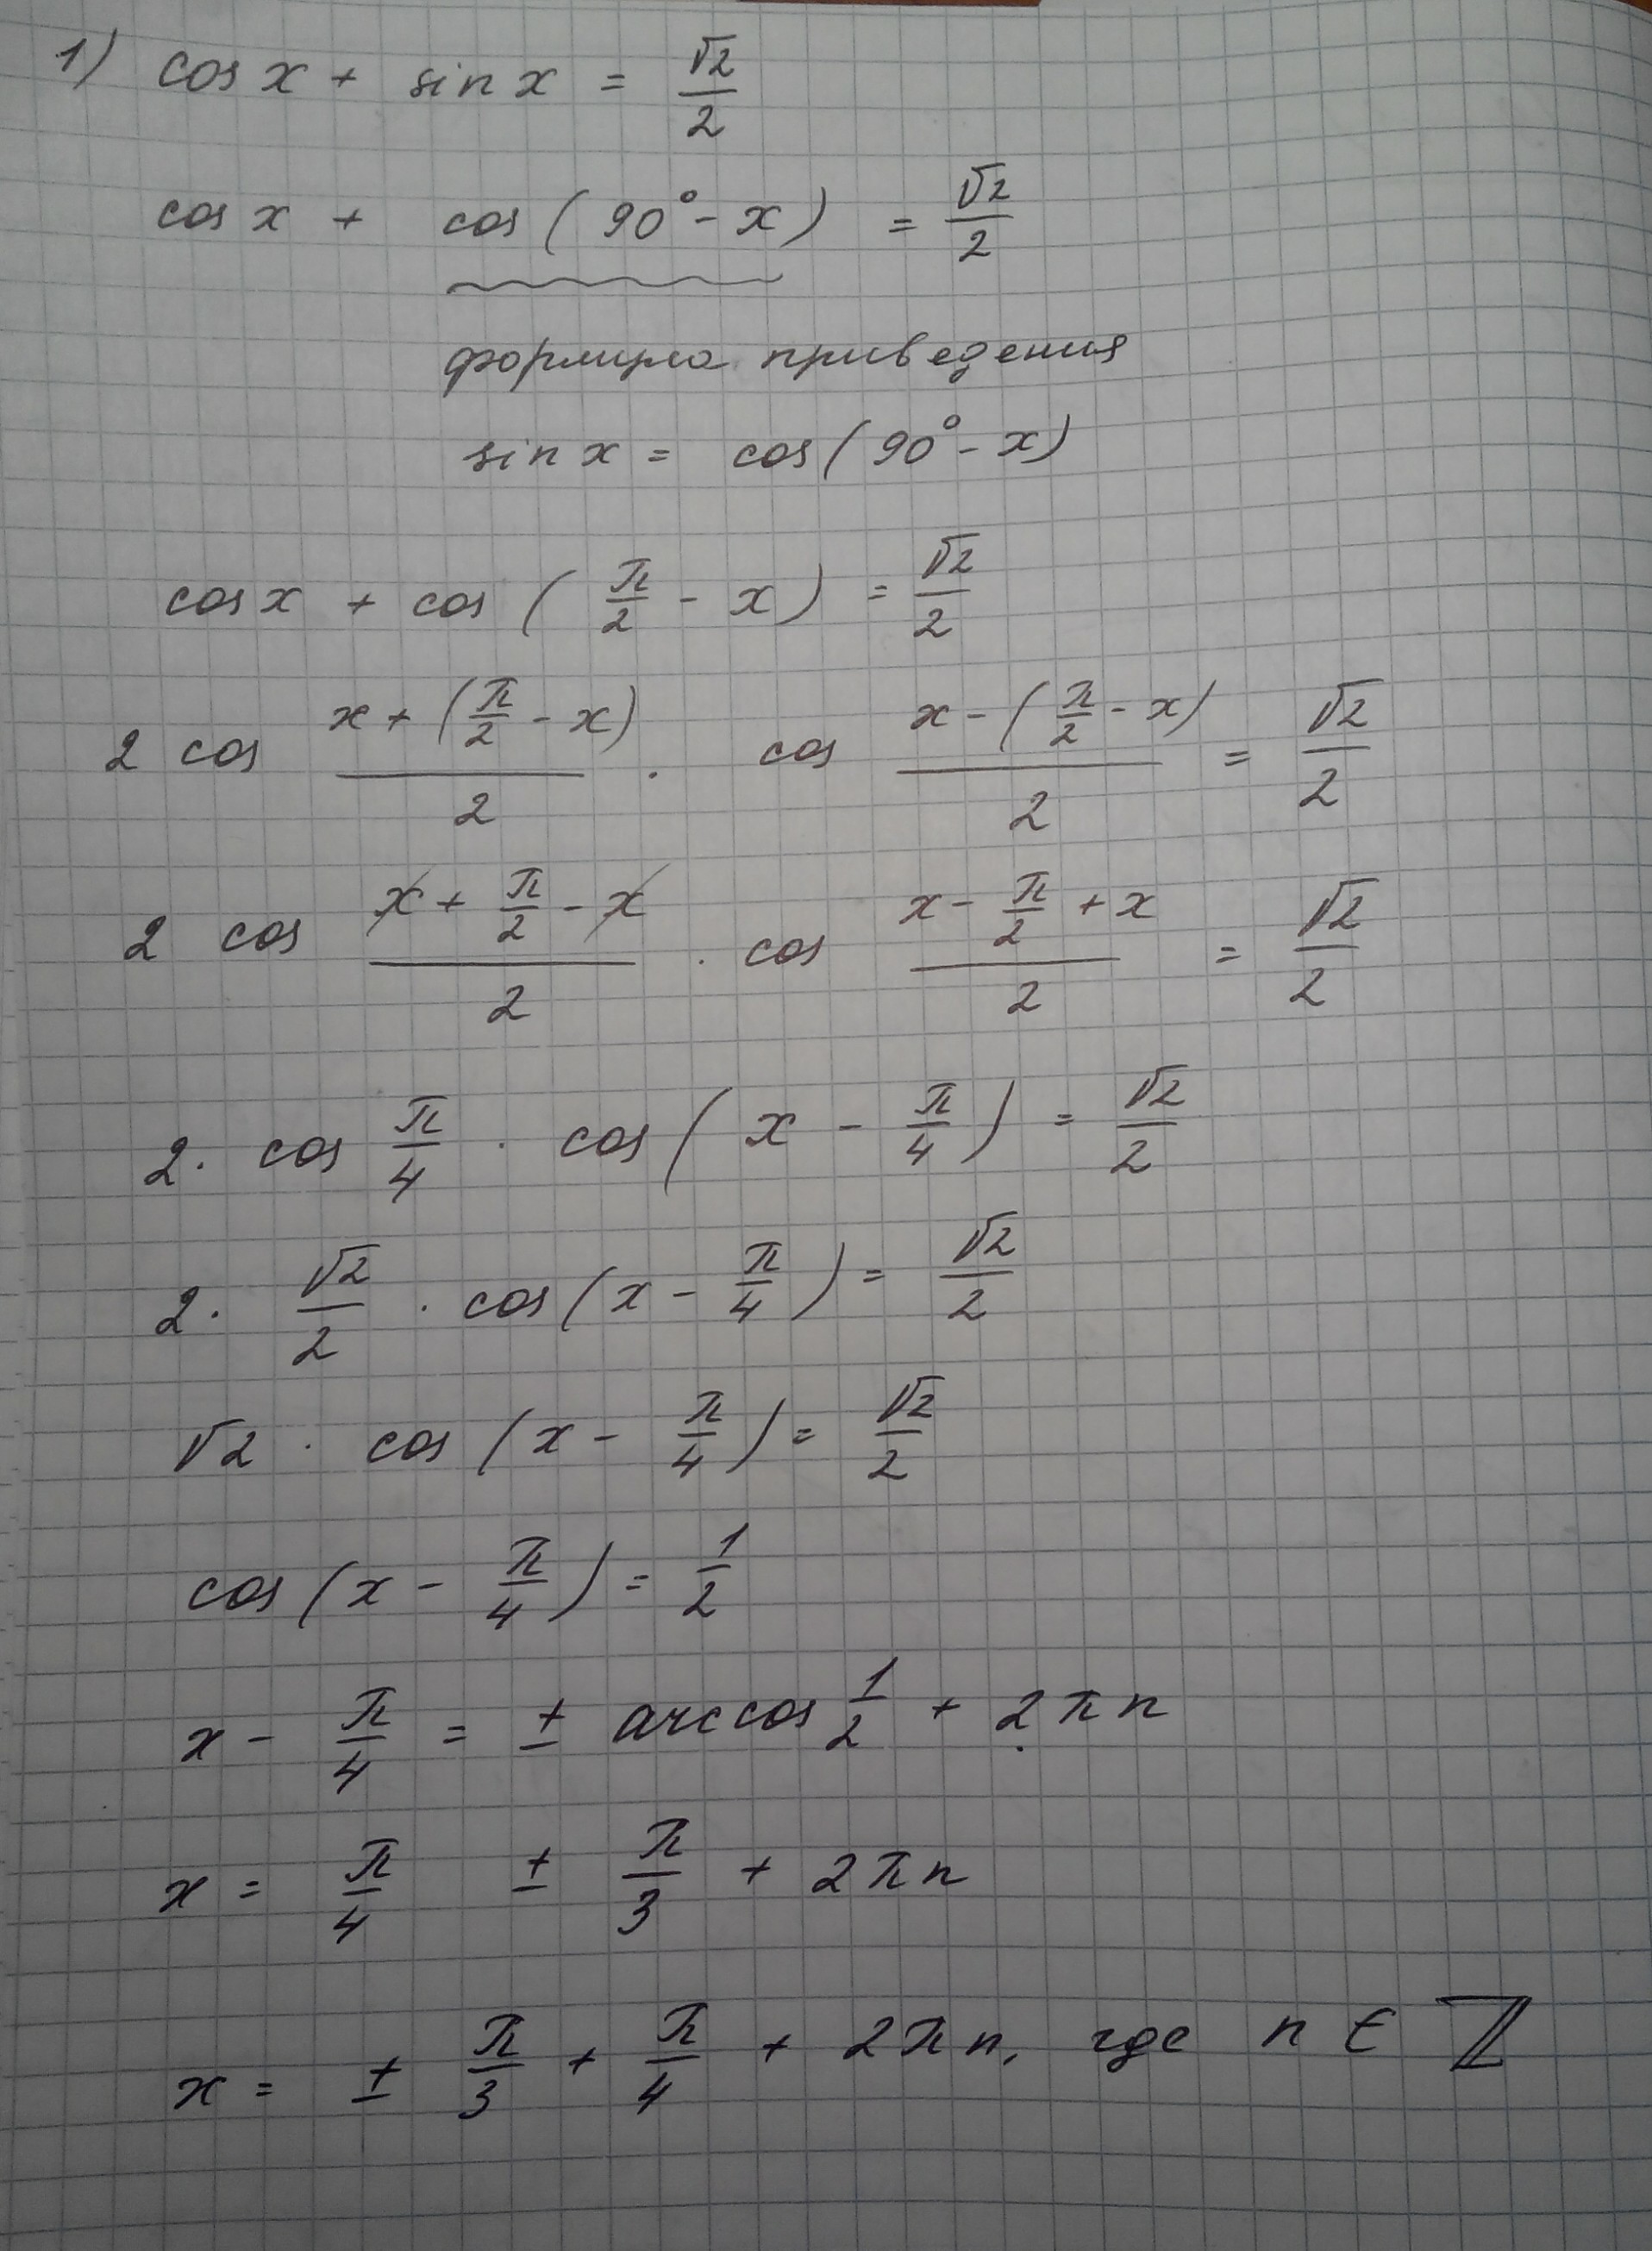 1) cos x + sin x = √2/2
cos x + cos(90° - x) = √2/2
формула приведения
sin x = cos(90° - x)
cos x + cos(π/2 - x) = √2/2
2 cos (x + (π/2 - x))/2 · cos (x - (π/2 - x))/2 = √2/2
2 cos (x + π/2 - x)/2 · cos (x - π/2 + x)/2 = √2/2
2 · cos π/4 · cos(x - π/4) = √2/2
2 · √2/2 · cos(x - π/4) = √2/2
√2 · cos(x - π/4) = √2/2
cos(x - π/4) = 1/2
x - π/4 = ± arccos 1/2 + 2πn
x = π/4 ± π/3 + 2πn
x = ± π/3 + π/4 + 2πn, где n ∈ ℤ